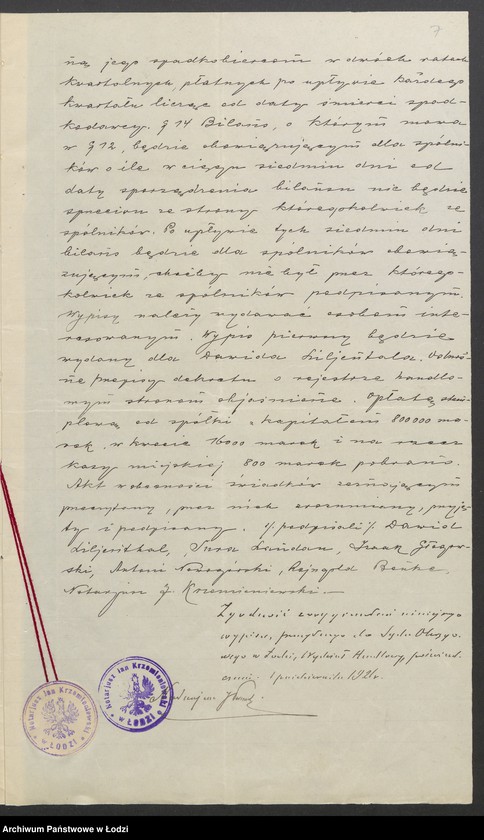 7
ną jego spadkobiercom w dwóch ratach
kwartalnych, płatnych po upływie każdego
kwartału licząc od daty śmierci spad-
kodawcy. § 14 Bilans, o którym mowa
w § 12, będzie obowiązującym dla spólni-
ków o ile w ciągu siedmiu dni od
daty sporządzenia bilansu nie będzie
sprzeciwu ze strony któregokolwiek ze
spólników. Po upływie tych siedmiu dni
bilans będzie dla spólników obowią-
zującym, choćby nie był przez którego-
kolwiek ze spólników podpisanym.
Wypisy należy wydawać osobom inte-
resowanym. Wypis pierwszy będzie
wydany dla Dawida Liljentala.
przepisy dekretu o rejestrze handlo-
wym stronom objaśnione. Opłatę stem-
plową od spółki z kapitałem 800000 ma-
rek, w kwocie 16000 marek i na rzecz
kasy miejskiej 800 marek pobrano.
Akt w obecności świadków zeznającym
przeczytany, przez nich zrozumiany, przyję-
ty i podpisany. /:/ podpisali /:/ Dawid
Liljenthal, Sura Landau, Izaak
ski, Antoni Nowogórski, Rajngold
Notarjusz J. Krzemieniewski.—
Zgodność z oryginałem niniejszego
wypisu, do Sądu Okręgo-
wego w Łodzi, Wydział Handlowy, poświad-
czam. 1 października 1921 r.
Notarjusz Jan Krzemieniewski
w ŁODZI
Notarjusz Jan Krzemieniewski
w ŁODZI
Archiwum Państwowe w Łodzi